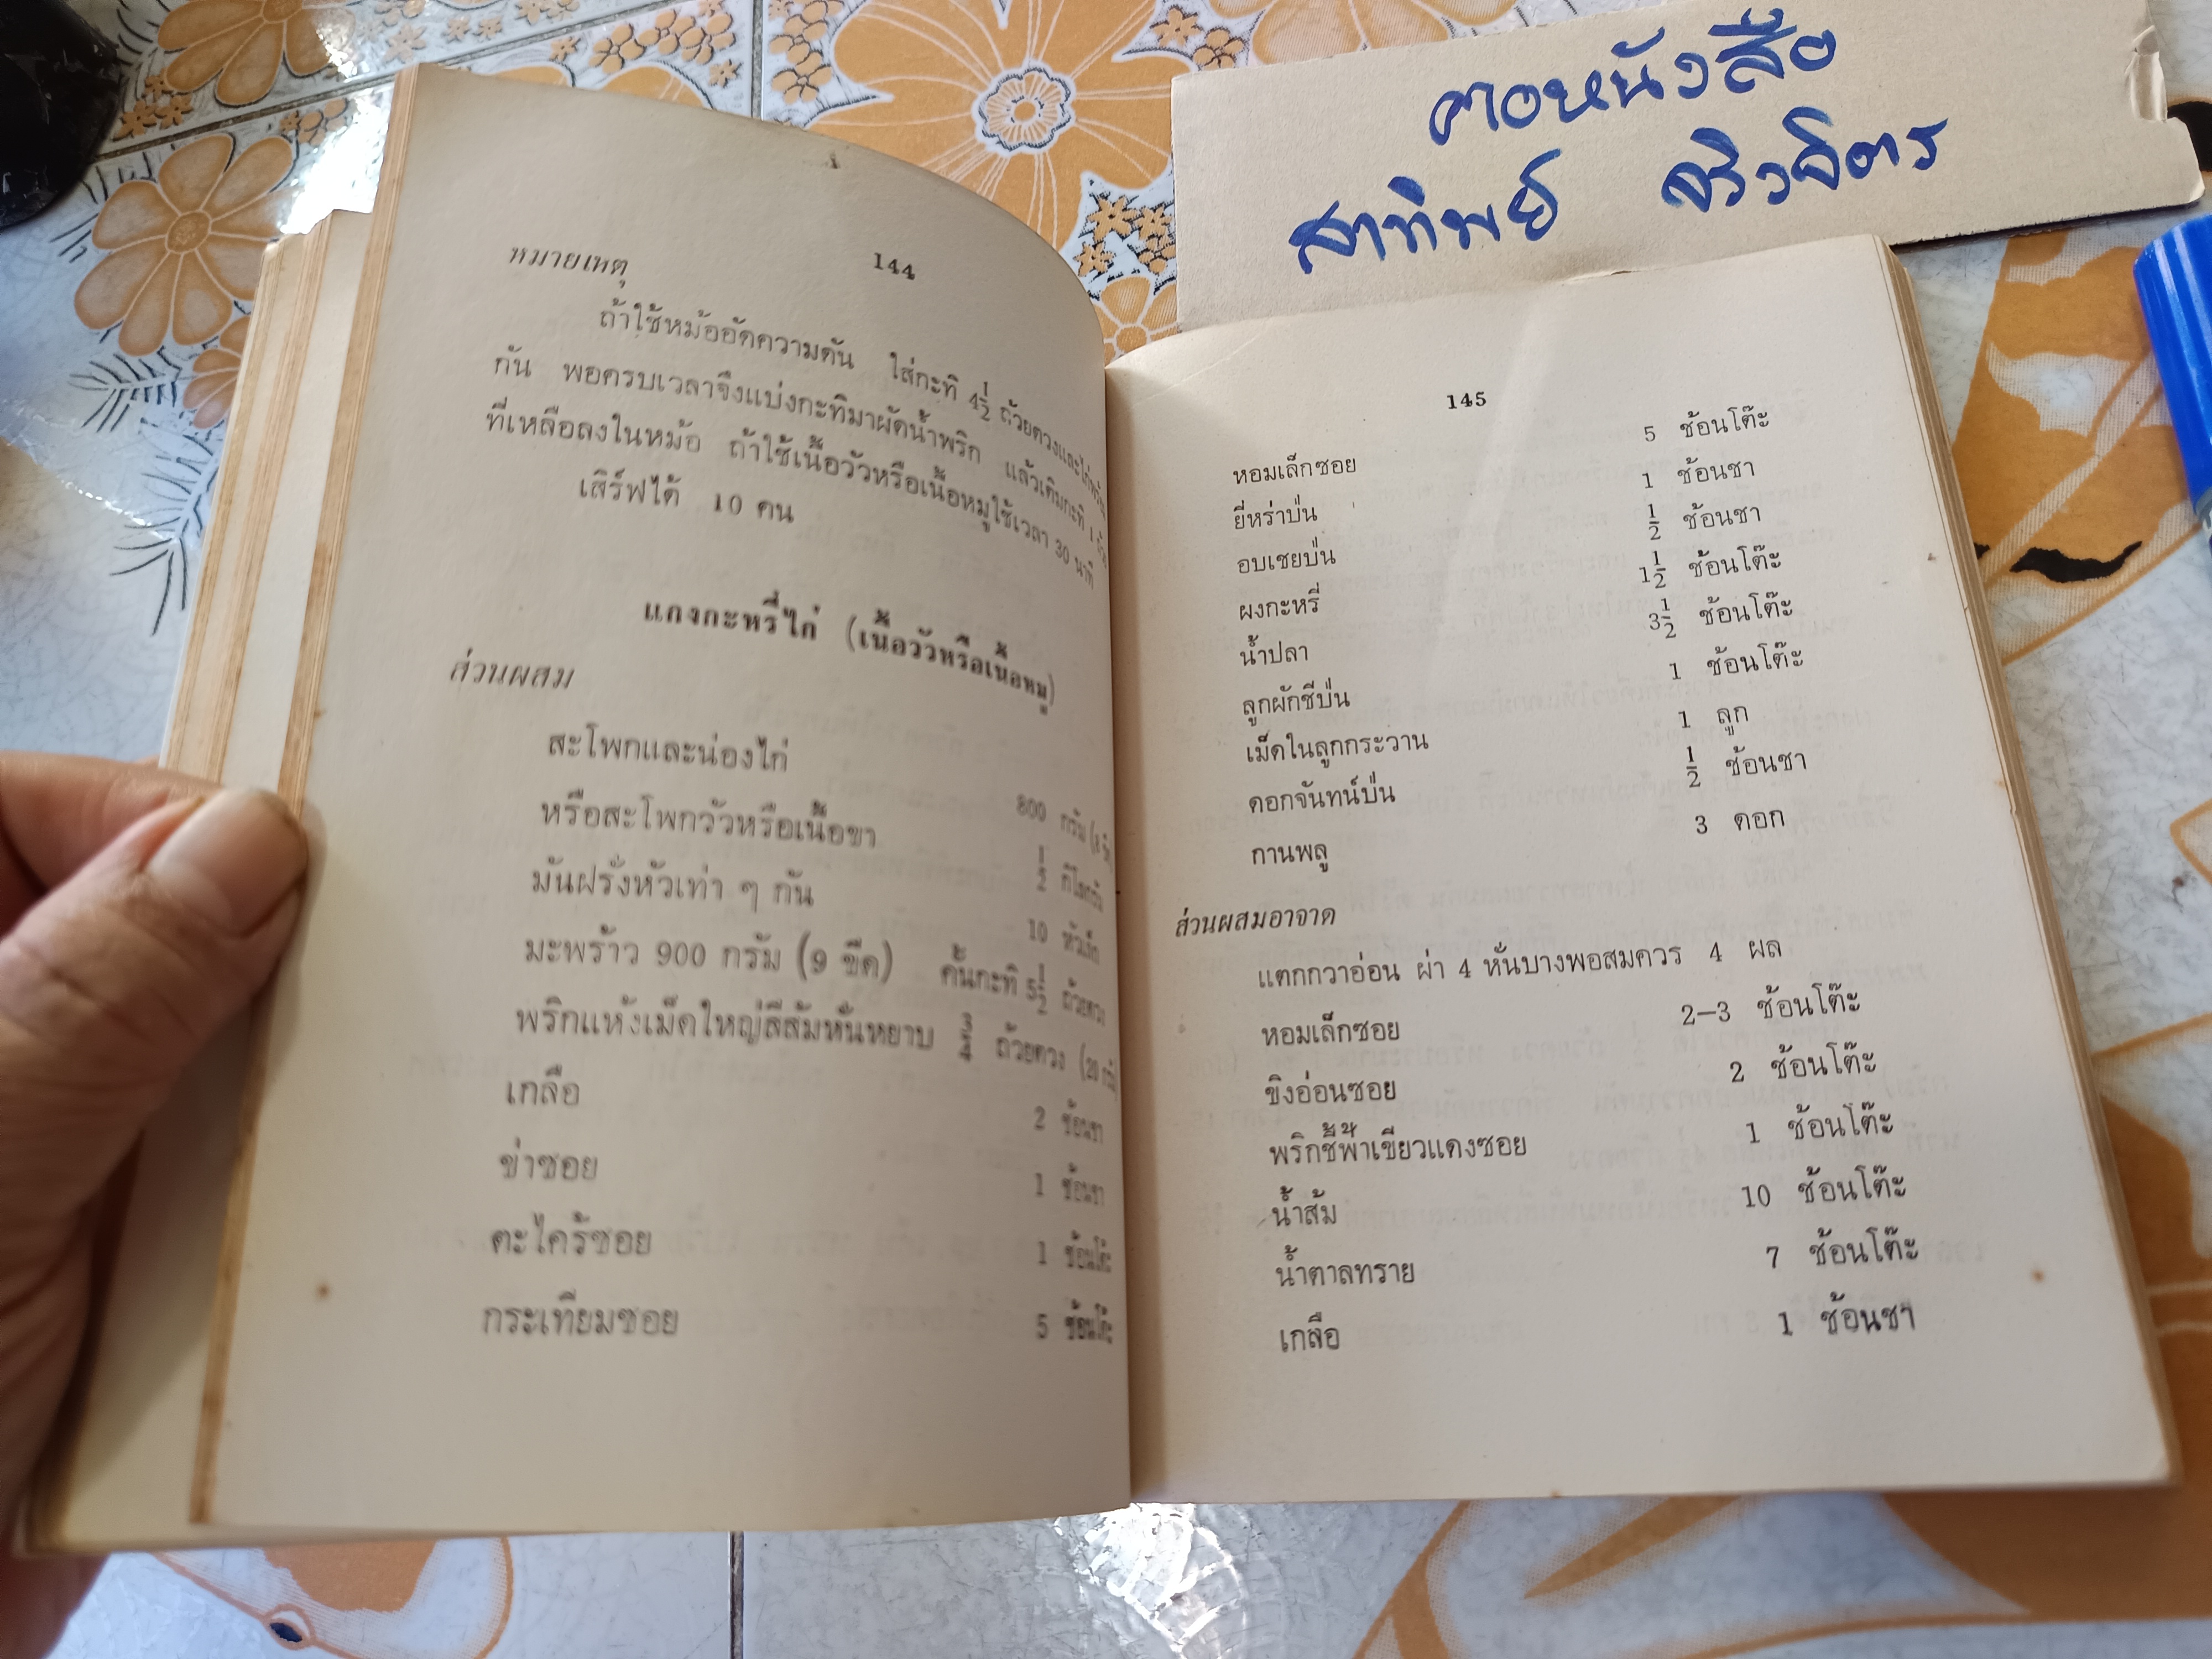 คอหนังสือ
สาทิพย์ จริงจิตร
144
หมายเหตุ
ถ้าใช้หม้ออัดความดัน ใส่กะทิ 4½ ถ้วยตวงและไก่พร้อม
กัน พอครบเวลาจึงแบ่งกะทิมาผัดน้ำพริก แล้วเติมกะทิ 1
ที่เหลือลงในหม้อ ถ้าใช้เนื้อวัวหรือเนื้อหมูใช้เวลา 30 นาที
เสิร์ฟได้ 10 คน
แกงกะหรี่ไก่ (เนื้อวัวหรือเนื้อหมู)
ส่วนผสม
สะโพกและน่องไก่ 800 กรัม
หรือสะโพกวัวหรือเนื้อขา ½ กิโลกรัม
มันฝรั่งหัวเท่า ๆ กัน 10 หัวเล็ก
มะพร้าว 900 กรัม (9 ขีด) คั้นกะทิ 5½ ถ้วยตวง
พริกแห้งเม็ดใหญ่สีส้มหั่นหยาบ ¾ ถ้วยตวง (20 กรัม)
เกลือ 2 ช้อนชา
ข่าซอย 1 ช้อนชา
ตะไคร้ซอย 1 ช้อนโต๊ะ
กระเทียมซอย 5 ช้อนโต๊ะ
145
หอมเล็กซอย 5 ช้อนโต๊ะ
ยี่หร่าป่น 1 ช้อนชา
อบเชยป่น ½ ช้อนชา
ผงกะหรี่ 1½ ช้อนโต๊ะ
น้ำปลา 3½ ช้อนโต๊ะ
ลูกผักชีป่น 1 ช้อนโต๊ะ
เม็ดในลูกกระวาน 1 ลูก
ดอกจันทน์ป่น ½ ช้อนชา
กานพลู 3 ดอก
ส่วนผสมอาจาด
แตกกวาอ่อน ผ่า 4 หั่นบางพอสมควร 4 ผล
หอมเล็กซอย 2–3 ช้อนโต๊ะ
ขิงอ่อนซอย 2 ช้อนโต๊ะ
พริกชี้ฟ้าเขียวแดงซอย 1 ช้อนโต๊ะ
น้ำส้ม 10 ช้อนโต๊ะ
น้ำตาลทราย 7 ช้อนโต๊ะ
เกลือ 1 ช้อนชา